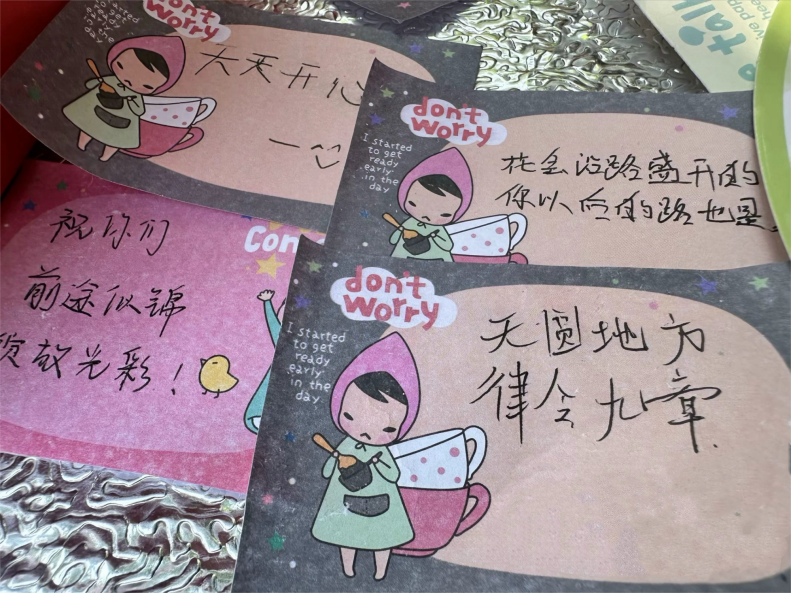 don't
worry
I started
to get
ready
early
in the
day
天天开心
don't
worry
I started
to get
ready
early
in the
day
花会沿路盛开的
你以后的路也是
祝你们
前途似锦
绽放光彩！
Con
don't
worry
I started
to get
ready
early
in the
day
天圆地方
律令九章
talk